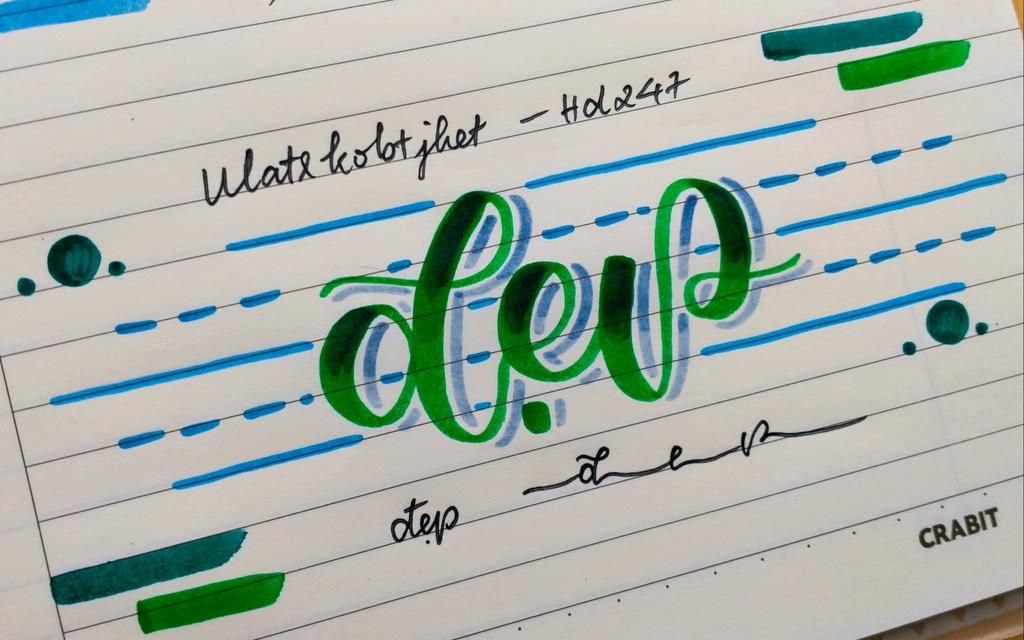 – Hd247
đẹp
đ e p
đẹp
CRABIT